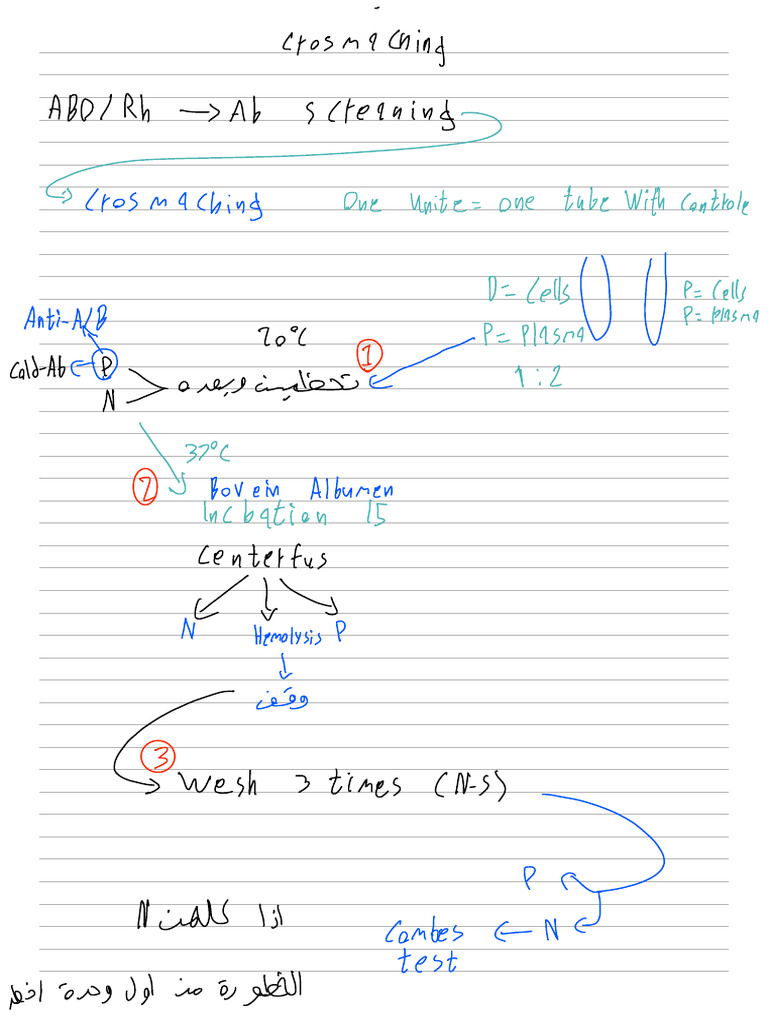 crosmaching
ABO/Rh → Ab screaning
crosmaching One Unite = one tube With Controle
D = Cells P = Cells
P = Plasma P = Plasma
1 : 2
Anti-A/B
20°C
1
Cald-Ab ← P
N
37°C
2 Bovein Albumen
Incbation 15
Centerfus
N Hemolysis P
↓
وقف
3 Wesh 3 times (N-S)
P
Combes ← N
test
اذا كلهن N
من اول وحدة